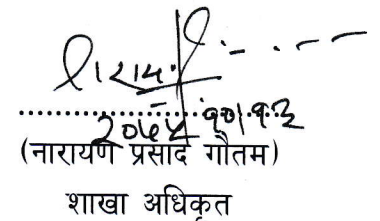 २०७५ १०।१३
(नारायण प्रसाद गौतम)
शाखा अधिकृत